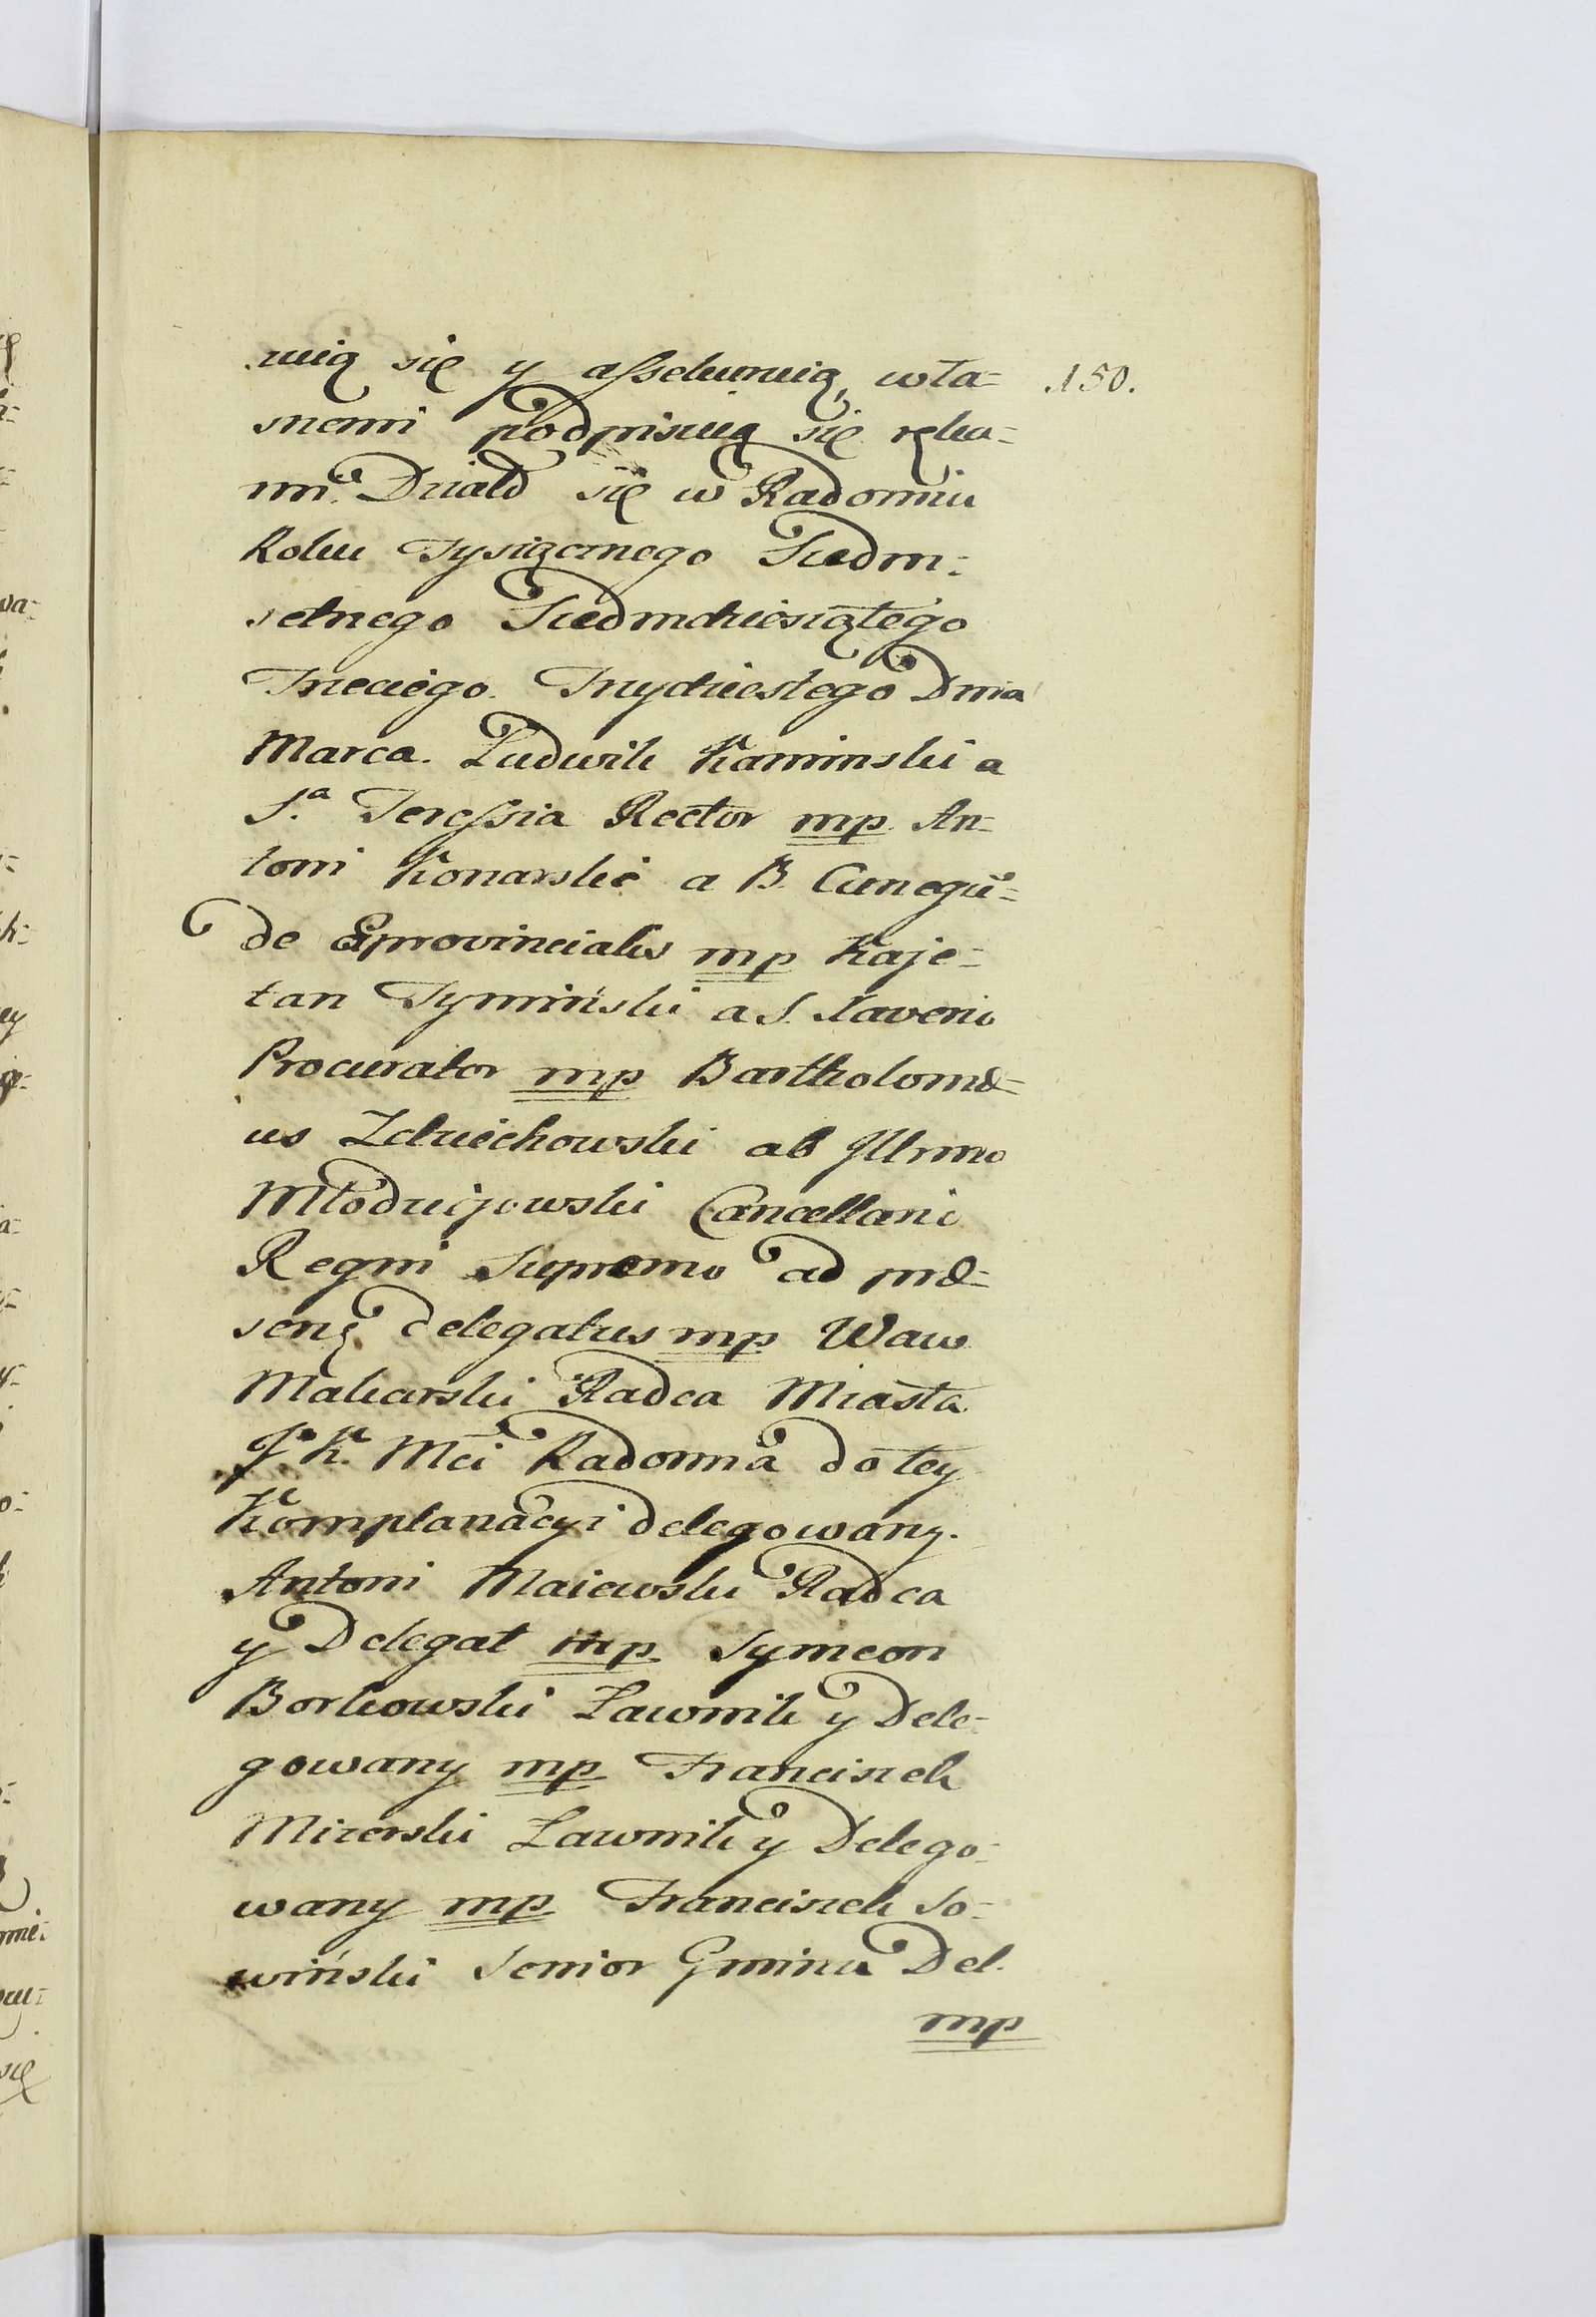 zuią się y assekuruią, wła=
150.
snemi podpisuią się ręka=
mi. Działo się w Radomiu
Roku Tysiącznego Siedm=
setnego Siedmdziesiątego
Trzeciego. Trzydziestego Dnia
Marca. Ludwik Kaminski a
S.ª Teressia Rector mp. An=
toni Konarski a B. Cunegũ=
de Exprovincialis mp Kaje=
tan Tymiński a S. Xaverio
Procurator mp Bartholomæ=
us Zdziechowski ab Illrmo
Młodzijowski Cancellario
Regni Supremo ad præ=
sens delegatus mp Waw
Makarski Radca Miasta
J. K. Mci Radomia do tey
Komplanacyi delegowany.
Antoni Maiewski Radca
y Delegat mp. Symeon
Borkowski Ławnik y Dele=
gowany mp Franciszek
Mizerski Ławnik y Delego=
wany mp Franciszek So=
wiński Senior Gminu Del.
mp